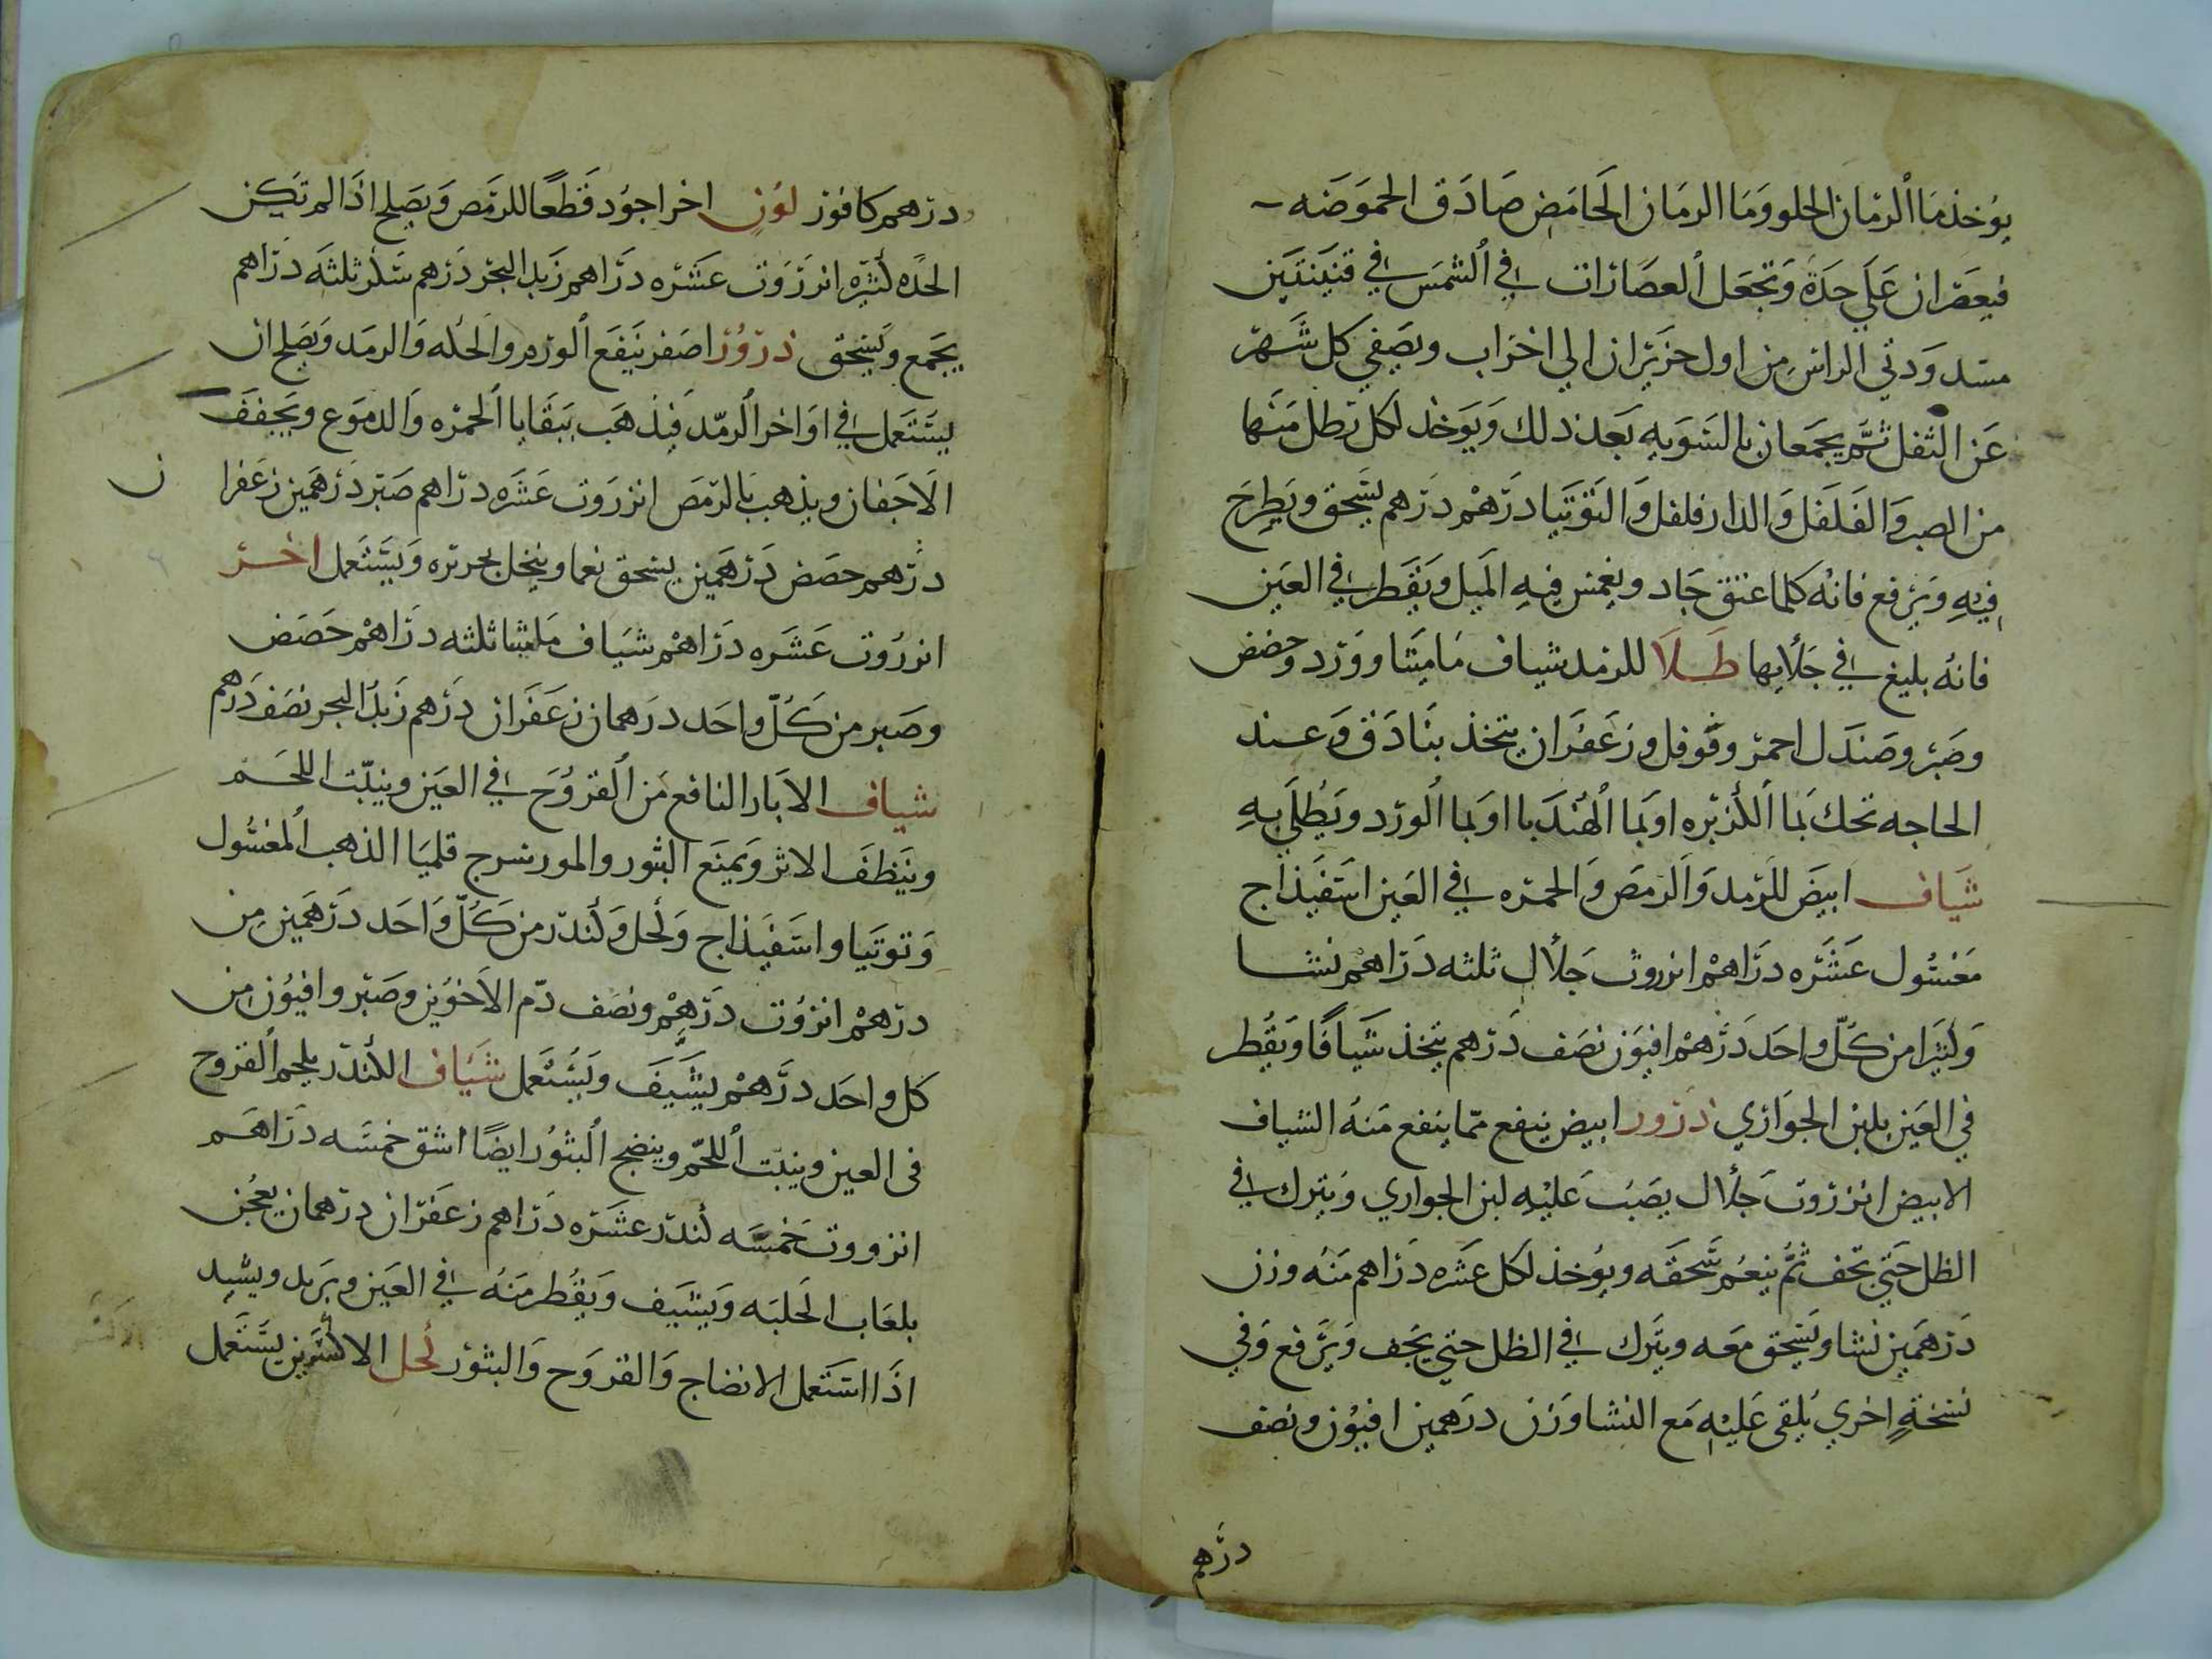 يوخذ ما الرمان الحلو وما الرمان الحامض صادق الحموضه
فيعصران على حدة وتجعل العصارات في الشمس في قنينتين
مسدودتي الراس من اول حزيران الي اخر اب ويصفي كل شهر
عن الثفل ثم يجمعان بالسويه بعد ذلك ويوخذ لكل رطل منها
من الصبر والفلفل والدار فلفل والتوتيا درهم درهم يسحق ويطرح
فيه ويرفع فانه كلما عتق جاد ويغمس فيه الميل ويقطر في العين
فانه بليغ في جلايها طلا للرمد شياف ماميثا وورد وحضض
وصبر وصندل احمر وفوفل وزعفران يتخذ بنادق وعند
الحاجه تحك بما الكزبره او بما الهندبا او بما الورد ويطلى به
شياف ابيض للرمد والرمص والحمره في العين اسفيذاج
مغسول عشره دراهم انزروت جلال ثلثه دراهم نشا
وكثيرا من كل واحد درهم افيون نصف درهم يتخذ شيافا ويقطر
في العين بلبن الجواري ذرور ابيض ينفع مما ينفع منه الشياف
الابيض انزروت جلال يصب عليه لبن الجواري ويترك في
الظل حتي تجف ثم ينعم سحقه ويوخذ لكل عشره دراهم منه وزن
درهمين نشا ويسحق معه ويترك في الظل حتي يجف ويرفع وفي
نسخة اخري يلقى عليه مع النشا وزن درهمين افيون ونصف
درهم
درهم كافور لون اخر اجود قطعا للرمص ويصلح اذا لم تكن
الحده كثيره انزروت عشره دراهم زبد البحر درهم سكر ثلثه دراهم
يجمع ويسحق ذرور اصفر ينفع الورم والحكه والرمد ويصلح ان
يستعمل في اواخر الرمد فيذهب ببقايا الحمره والدموع ويجفف
الاجفان ويذهب بالرمص انزروت عشره دراهم صبر درهمين زعفرا ن
درهم حضض درهمين يسحق نعما وينخل بحريره ويستعمل اخر
انزروت عشره دراهم شياف ماميثا ثلثه دراهم حضض
وصبر من كل واحد درهمان زعفران درهم زبد البحر نصف درهم
شياف الابار النافع من القروح في العين وينبت اللحم
وينظف الاثر ويمنع البثور والمورسرج قلميا الذهب المغسول
وتوتيا واسفيذاج وكحل وكندر من كل واحد درهمين من
درهم انزروت درهم ونصف دم الاخوين وصبر وافيون من
كل واحد درهم يشيف ويستعمل شياف الكندر يلحم القروح
فى العين وينبت اللحم وينضج البثور ايضا اشق خمسه دراهم
انزروت خمسه كندر عشره دراهم زعفران درهمان يعجن
بلعاب الحلبه ويشيف ويقطر منه في العين ويربد ويشد
اذا استعمل الانضاج والقروح والبثور كحل الاكسرين يستعمل